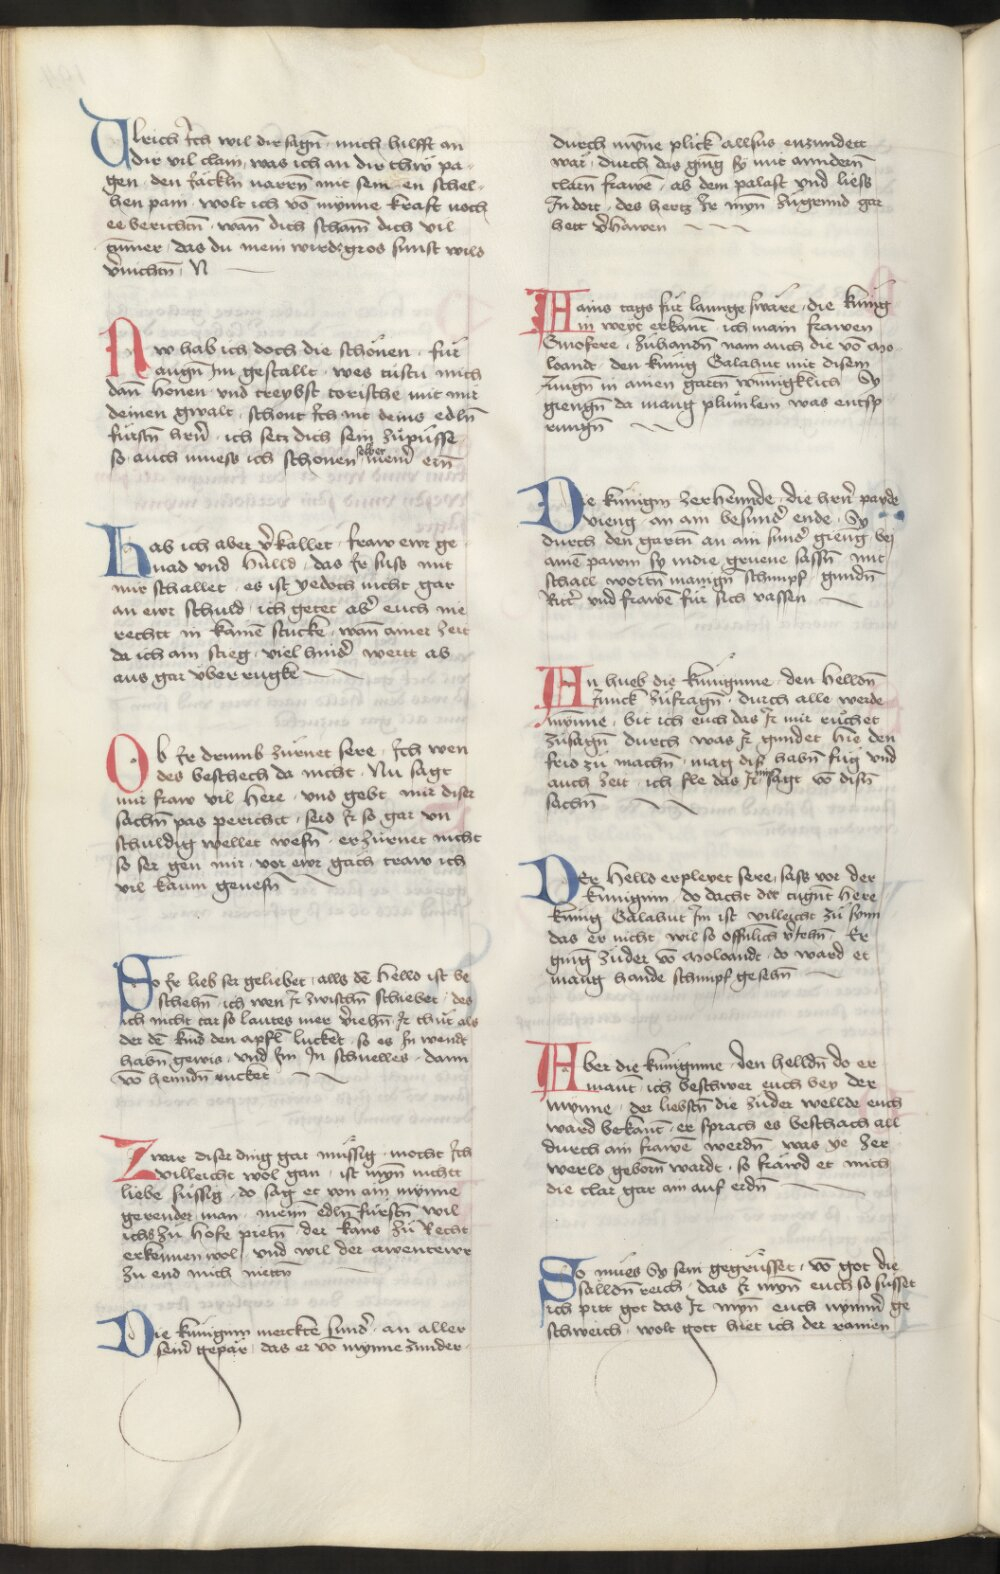 Ulrich Ich wil dir sagn̄ · mich hilfft an
dir vil clain, was ich an dir thw̄ pa-
gen · den säckln̄ narrn̄ mit sem en schel-
hen pam · wolt ich vō mynne kraft noch
ee berichtn̄ · wan̄ dich scham̄ dich vil
ym̄er · das du mein wirdz gros sunst wils
v̄nichtn̄ · N
Nw hab ich doch die schönen · für
augn̄ Im gestallt · wes tüstu mich
dan̄ henen · vnd treybst torische mit mir
deinen gwalt · schont Ich nit deins edln̄
fürstn̄ hrn̄ · ich setz dich sein zūpüsse
so auch muess ich schonen selber meinr̄ ern̄
Hab ich aber v̄kallet · fraw ewr ge
nad vnd Hulld · das Ir suss mit
mir schallet · es ist yedoch nicht gar
an ewr schuld · ich getet ab̄ euch nie
rechtt in kainē stucke · wan̄ ainer zeit
da ich ain stieg · viel hind̄ wertt ab
aus gar vber rugke
Ob Ir drumb zürnet sere · Ich wen
des beschech da nicht · Nu sagt
mir fraw vil here · vnd gebt mir diser
sachn̄ pas perichtt · seid Ir so gar vn
schuldig wellet wesn̄ · erzürnet nicht
so ser gen mir · vor ewr gäch traw ich
vil kaum genesn̄
So Ir lieb ser geliebet · alls dē Helld ist be
schehn̄ · ich wen Ir zwischn̄ schiebet · des
ich nicht tar so lautes mer v̄iehn̄ · Ir thüt als
der dē kind den apfl̄ lucket · so es In wendt
habn̄ gewis · vnd Im In schnelles · dann
vō henndn̄ rucket
Zwar diser ding gar müssig · mocht Ich
villeicht wol gan · ist myn̄ nichtt
liebe süssig · do sag et von ain mynne
gerender man · meim edln̄ fürstn̄ wil
ichs zū hofe pietn̄ · der kans zū Recht
erkennen wol · vnd wil der awentewr
zū end mich niettn̄
Die künigin merckte sund̄ · an aller
seinr̄ gepär · das er vō mynne zunder
durch mȳne plick allsus enzundett
war · durch das gīng sy mit anndern̄
clarn̄ frawē · ab dem palast vnd liess
In dort · des hertz Ir myn̄ zūgrund gar
hett v̄hawen
Hains tags für lannge swäre · die künig
in weyt erkant · ich main frawen
Ginofere · zūhandn̄ nam auch die vō mo-
loandt · den künig Galahut mit disem
Jungn̄ in ainen gartn̄ wunigklich Sy
giengn̄ da manig plümlein was entsp
rungn̄
Die künigin zerhennde · die hrn̄ payde
vieng · an am besund̄ ende · Sy
durch den gartn̄ an ain sund̄ gieng · bej
ainē pawm sy indie gruene sassn̄ · mit
schall wortn̄ manign̄ schimpf · gundn̄
Ritt̄ vnd frawē für sich vassen
An hueb die künigine · den helldn̄
Junck zūfragn̄ · durch alle werde
mȳnne · bit ich euch das Ir mir rüchet
zūsagn̄ · durch was Ir gundet hie den
frid zū machn̄ · mag diß habn̄ füg vnd
auch zeit · ich fle das Ir mir sagt vō disn̄
sachn̄
Der Helld erplevet sere · sass vor der
künigin̄ · do dacht der tugn̄t here
künig Galahut Im ist villeicht zū synn
das er nicht wil so offnlich v̄iehn̄ · Er
ging zuder vō Moloandt · do ward et
manig hande schimpf gesehn̄
Aber die künigine · den helldn̄ do er
mant · ich beschwer euch bey der
mynne · der liebstn̄ die zuder wellde euch
ward bekant · er sprach es beschach all
durch ain frawē werdn̄ · was ye zer
werld geborn̄ wardt · so fräwd et mich
die clar gar ain auf erdn̄
So mües Sy sein gegrüsset · vō got die
sälldn̄ reich · das Ir myn̄ euch so süsset
ich pitt got das Ir myn̄ euch nym̄er ge
schweich · wolt gott hiet ich der ramen